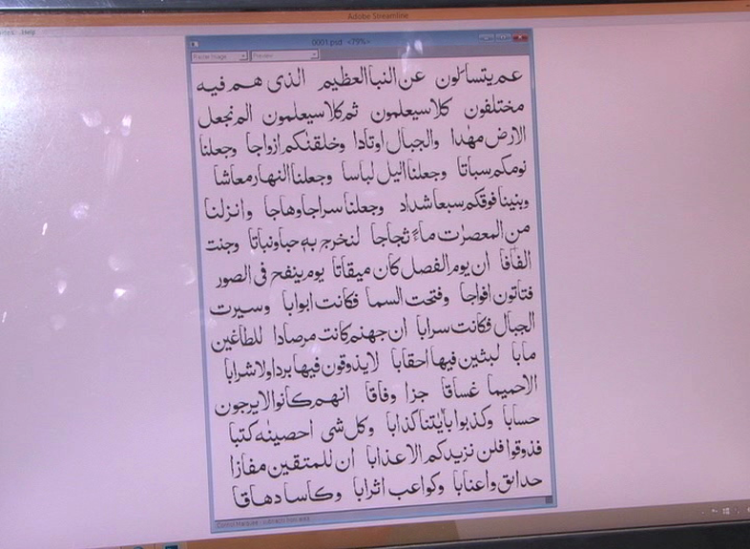 Adobe Streamline
Help
0001.psd <79%>
Raster Image Preview
عم يتسالون عن النبا العظيم الذى هم فيه
مختلفون كلا سيعلمون ثم كلا سيعلمون الم نجعل
الارض مهٰدا والجبال اوتادا وخلقنٰكم ازواجا وجعلنا
نومكم سباتا وجعلنا اليل لباسا وجعلنا النهار معاشا
وبنينا فوقكم سبعا شداد وجعلنا سراجا وهاجا وانزلنا
من المعصرٰت ماءً ثجاجا لنخرج به حبا ونباتا وجنت
الفافا ان يوم الفصل كان ميقاتا يوم ينفح فى الصور
فتاتون افواجا وفتحت السما فكانت ابوابا وسيرت
الجبال فكانت سرابا ان جهنم كانت مرصادا للطاغين
مابا لبثين فيها احقابا لا يذوقون فيها بردا ولا شرابا
الا حميما غساقا جزا وفاقا انهم كانوا لا يرجون
حسابا وكذبوا بايٰتنا كذابا وكل شى احصينٰه كتبا
فذوقوا فلن نزيدكم الا عذابا ان للمتقين مفازا
حدايق واعنابا وكواعب اثرابا وكاسا دهاقا